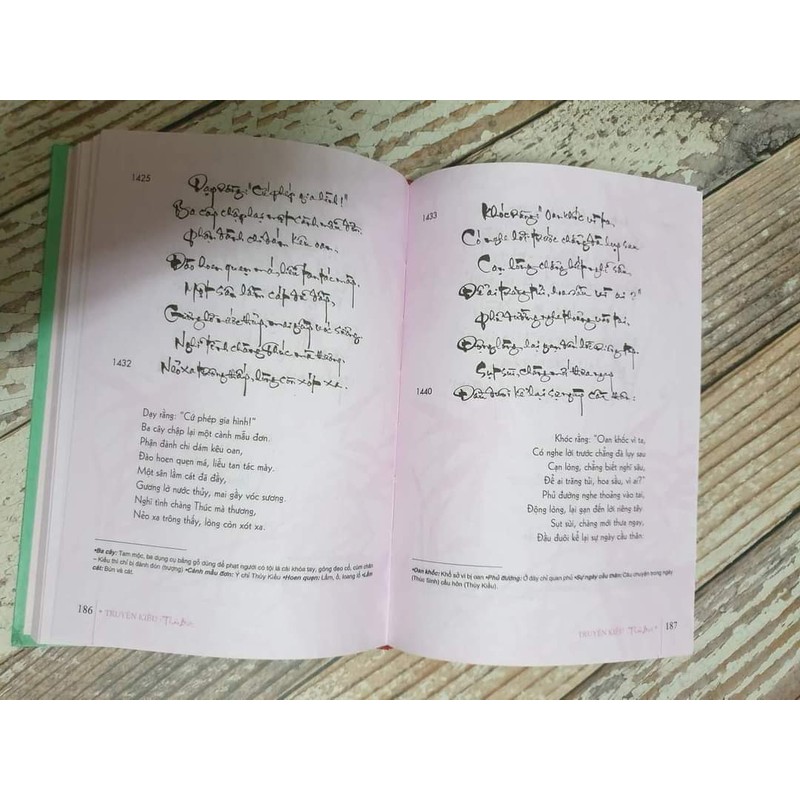 1425
Dạy rằng: "Cứ phép gia hình!"
Ba cây chập lại một cành mẫu đơn.
Phận đành chi dám kêu oan,
Đào hoen quẹn má, liễu tan tác mày.
Một sân lầm cát đã đầy,
Gương lờ nước thủy, mai gầy vóc sương.
Nghĩ tình chàng Thúc mà thương,
1432 Nẻo xa trông thấy, lòng còn xót xa.
Dạy rằng: "Cứ phép gia hình!"
Ba cây chập lại một cành mẫu đơn.
Phận đành chi dám kêu oan,
Đào hoen quẹn má, liễu tan tác mày.
Một sân lầm cát đã đầy,
Gương lờ nước thủy, mai gầy vóc sương.
Nghĩ tình chàng Thúc mà thương,
Nẻo xa trông thấy, lòng còn xót xa.
•Ba cây: Tam mộc, ba dụng cụ bằng gỗ dùng để phạt người có tội là cái khóa tay, gông đeo cổ, cùm chân
– Kiều thì chỉ bị đánh đòn (trượng) •Cành mẫu đơn: Ý chỉ Thúy Kiều •Hoen quẹn: Lấm, ố, loang lổ •Lầm
cát: Bùn và cát.
186 • TRUYỆN KIỀU
1433 Khóc rằng: "Oan khốc vì ta,
Có nghe lời trước chẳng đà lụy sau
Cạn lòng chẳng biết nghĩ sâu,
Để ai trăng tủi, hoa sầu vì ai?"
Phủ đường nghe thoảng vào tai,
Động lòng, lại gạn đến lời riêng tây
Sụt sùi, chàng mới thưa ngay,
1440 Đầu đuôi kể lại sự ngày cầu thân:
Khóc rằng: "Oan khốc vì ta,
Có nghe lời trước chẳng đà lụy sau
Cạn lòng, chẳng biết nghĩ sâu,
Để ai trăng tủi, hoa sầu, vì ai?"
Phủ đường nghe thoảng vào tai,
Động lòng, lại gạn đến lời riêng tây
Sụt sùi, chàng mới thưa ngay,
Đầu đuôi kể lại sự ngày cầu thân:
•Oan khốc: Khổ sở vì bị oan •Phủ đường: Ở đây chỉ quan phủ •Sự ngày cầu thân: Câu chuyện trong ngày
(Thúc Sinh) cầu hôn (Thúy Kiều).
TRUYỆN KIỀU • 187